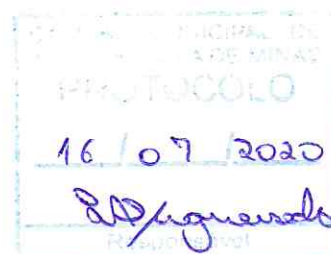 MUNICIPAL DE
DE MINAS
PROTOCOLO
16 / 07 / 2020
Responsável